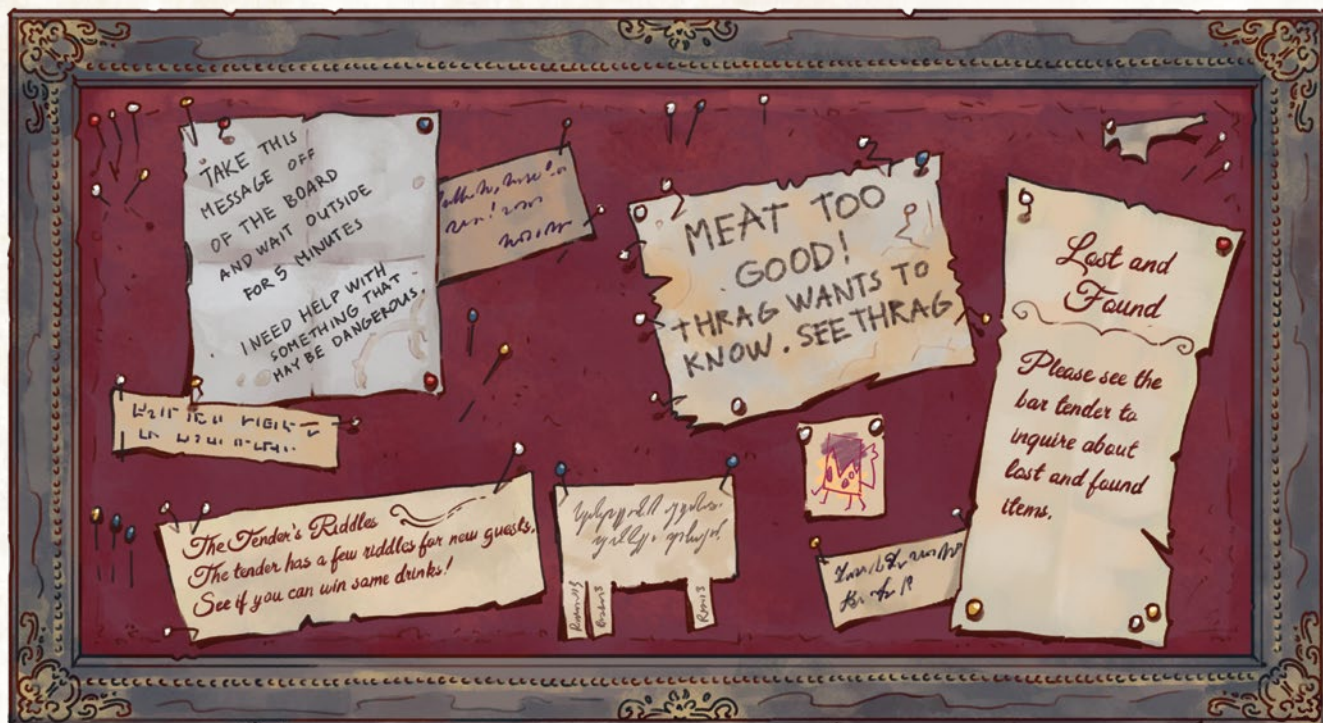 TAKE THIS
MESSAGE OFF
OF THE BOARD
AND WAIT OUTSIDE
FOR 5 MINUTES
I NEED HELP WITH
SOMETHING THAT
MAY BE DANGEROUS.
MEAT TOO
GOOD!
THRAG WANTS TO
KNOW. SEE THRAG
Lost and
Found
Please see the
bar tender to
inquire about
lost and found
items.
The Tender's Riddles
The tender has a few riddles for new guests.
See if you can win some drinks!